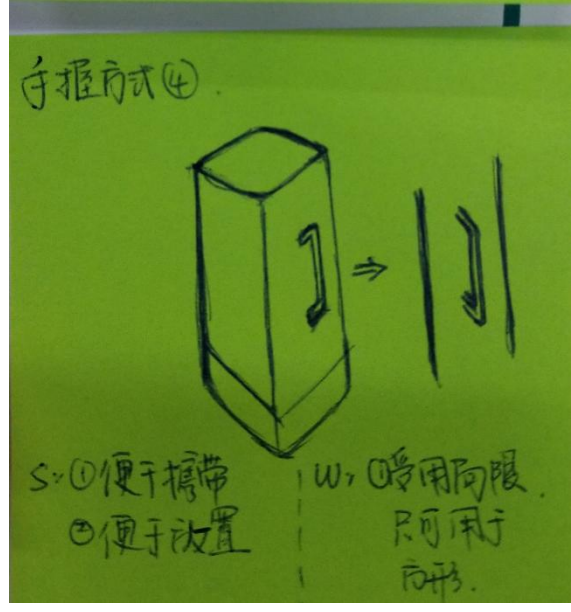 手握方式④.
S: ①便于携带
②便于放置
W: ①受用局限.
只可用于
方形.